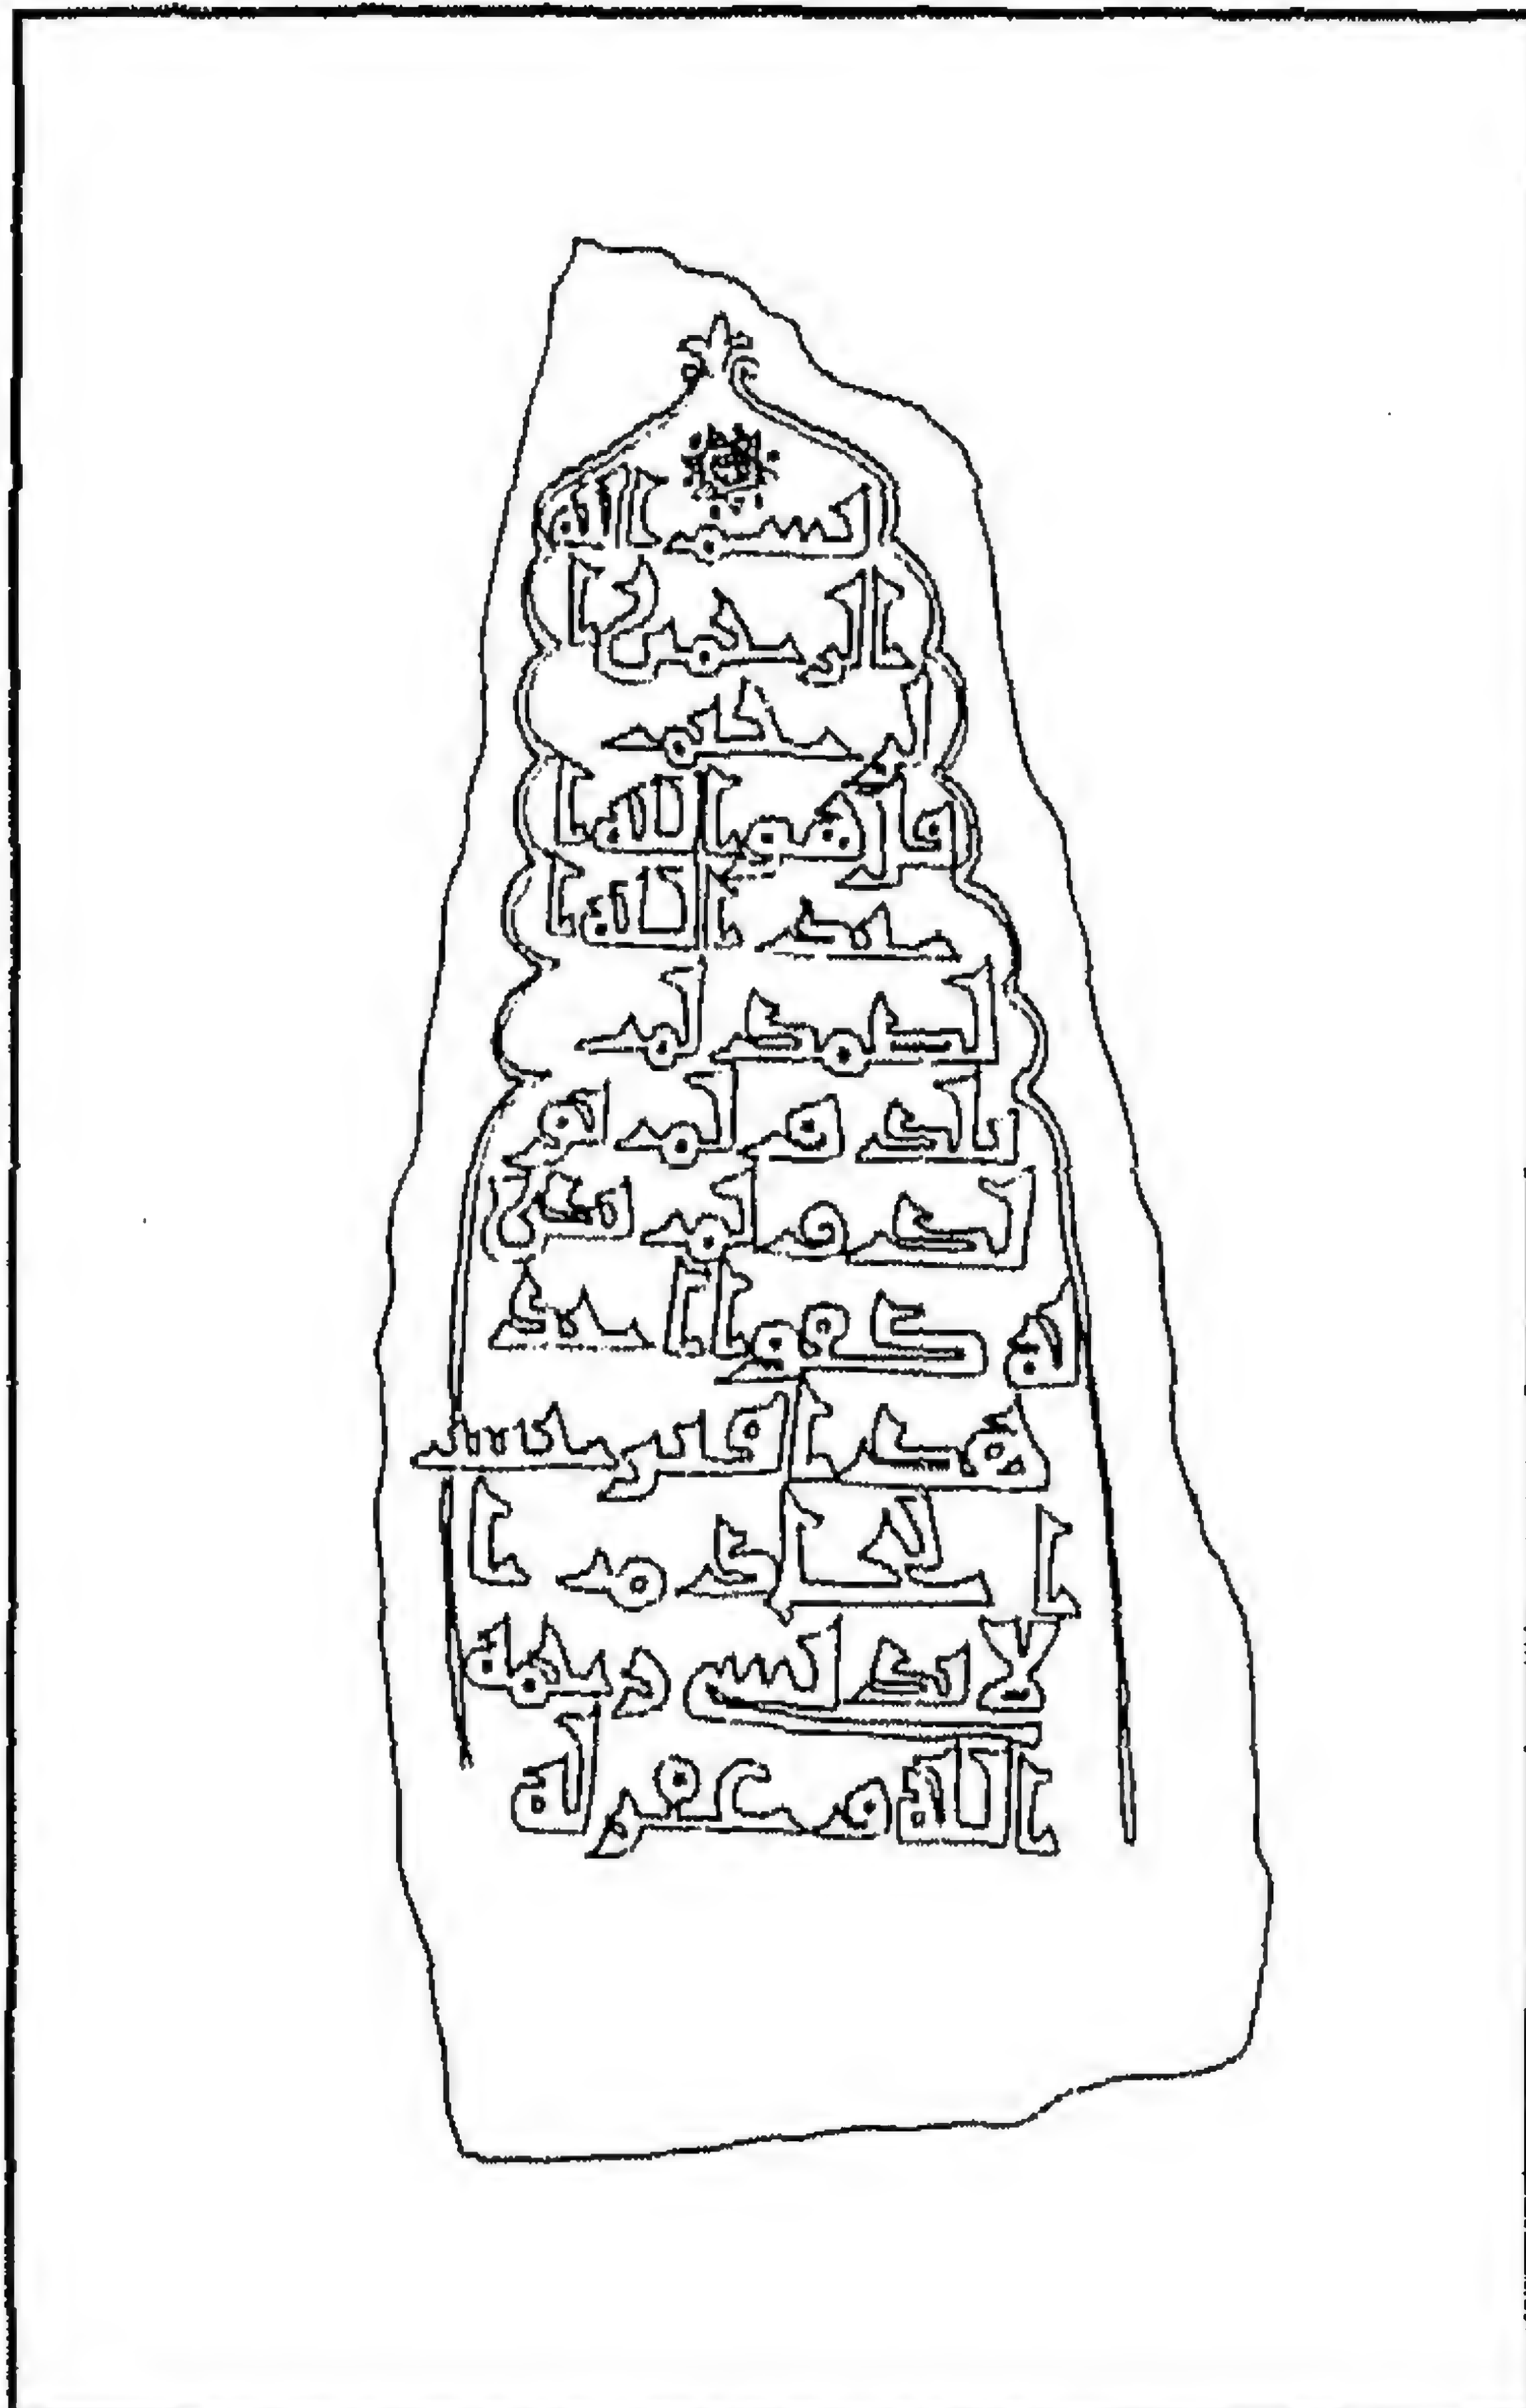 بسم الله
الرحمن ا
لرحيم
قل هو الله ا
حد الله ا
لصمد لم
يلد و لم يو
لد و لم يكن
له كفوا احد
هذا قبر
من ا
لاندلس رحمه
الله و غفر له